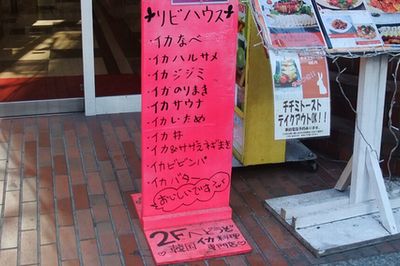 リビハウス
・イカなべ
・イカハルサメ
・イカジジミ
・イカのりまき
・イカサウナ
・イカいため
・イカ丼
・イカ&ササミネギまき
・イカビビンバ
・イカバター
おいしいですョ
2Fへどうぞ
韓国イカ料理
専門店
チヂミトースト
テイクアウトOK!!